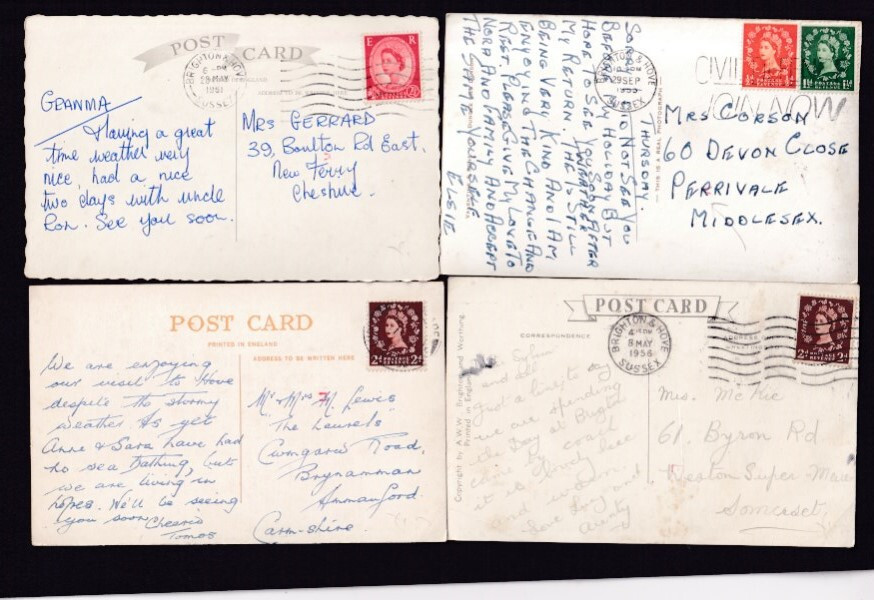 POST CARD
BRIGHTON & HOVE
29 MAY
1961
SUSSEX
E R
GRANMA
Having a great
time weather very
nice, had a nice
two days with uncle
Ron. See you soon.
MRS GERRARD
39, Boulton Rd East.
New Ferry
Cheshire.
HOVE
29 SEP
SUSSEX
CIVIL
JOIN NOW
THIS IS A REAL PHOTOGRAPH
THURSDAY.
SORRY DID NOT SEE YOU
BEFORE MY HOLIDAY BUT
HOPE TO SEE YOU SOON AFTER
MY RETURN. THE WEATHER IS STILL
BEING VERY KIND AND I AM
ENJOYING THE CHANGE AND
REST. PLEASE GIVE MY LOVE TO
NORA AND FAMILY AND ACCEPT
THE SAME YOURSELF.
ELSIE
MRS CORSON
60 DEVON CLOSE
PERRIVALE
MIDDLESEX.
POST CARD
PRINTED IN ENGLAND
ADDRESS TO BE WRITTEN HERE
2d 2d
We are enjoying
our visit to Hove
despite the stormy
weather. As yet
Anne & Sara have had
no sea bathing, but
we are living in
hopes. We'll be seeing
you soon Cheerio
Tomos
Mr & Mrs M. Lewis
"The Laurels"
Cwmgarw Road,
Brynamman
Ammanford.
Carm-shire.
POST CARD
CORRESPONDENCE
BRIGHTON & HOVE
8 MAY
1956
SUSSEX
2d 2d
Copyright by A.W.W. Brighton and Worthing
Printed in England
and all
just a line to say
we are spending
the Day at
by coach
it is lovely here
and
Love
Aunty
Mrs. McKie
61. Byron Rd
Weston Super-Mare
Somerset.